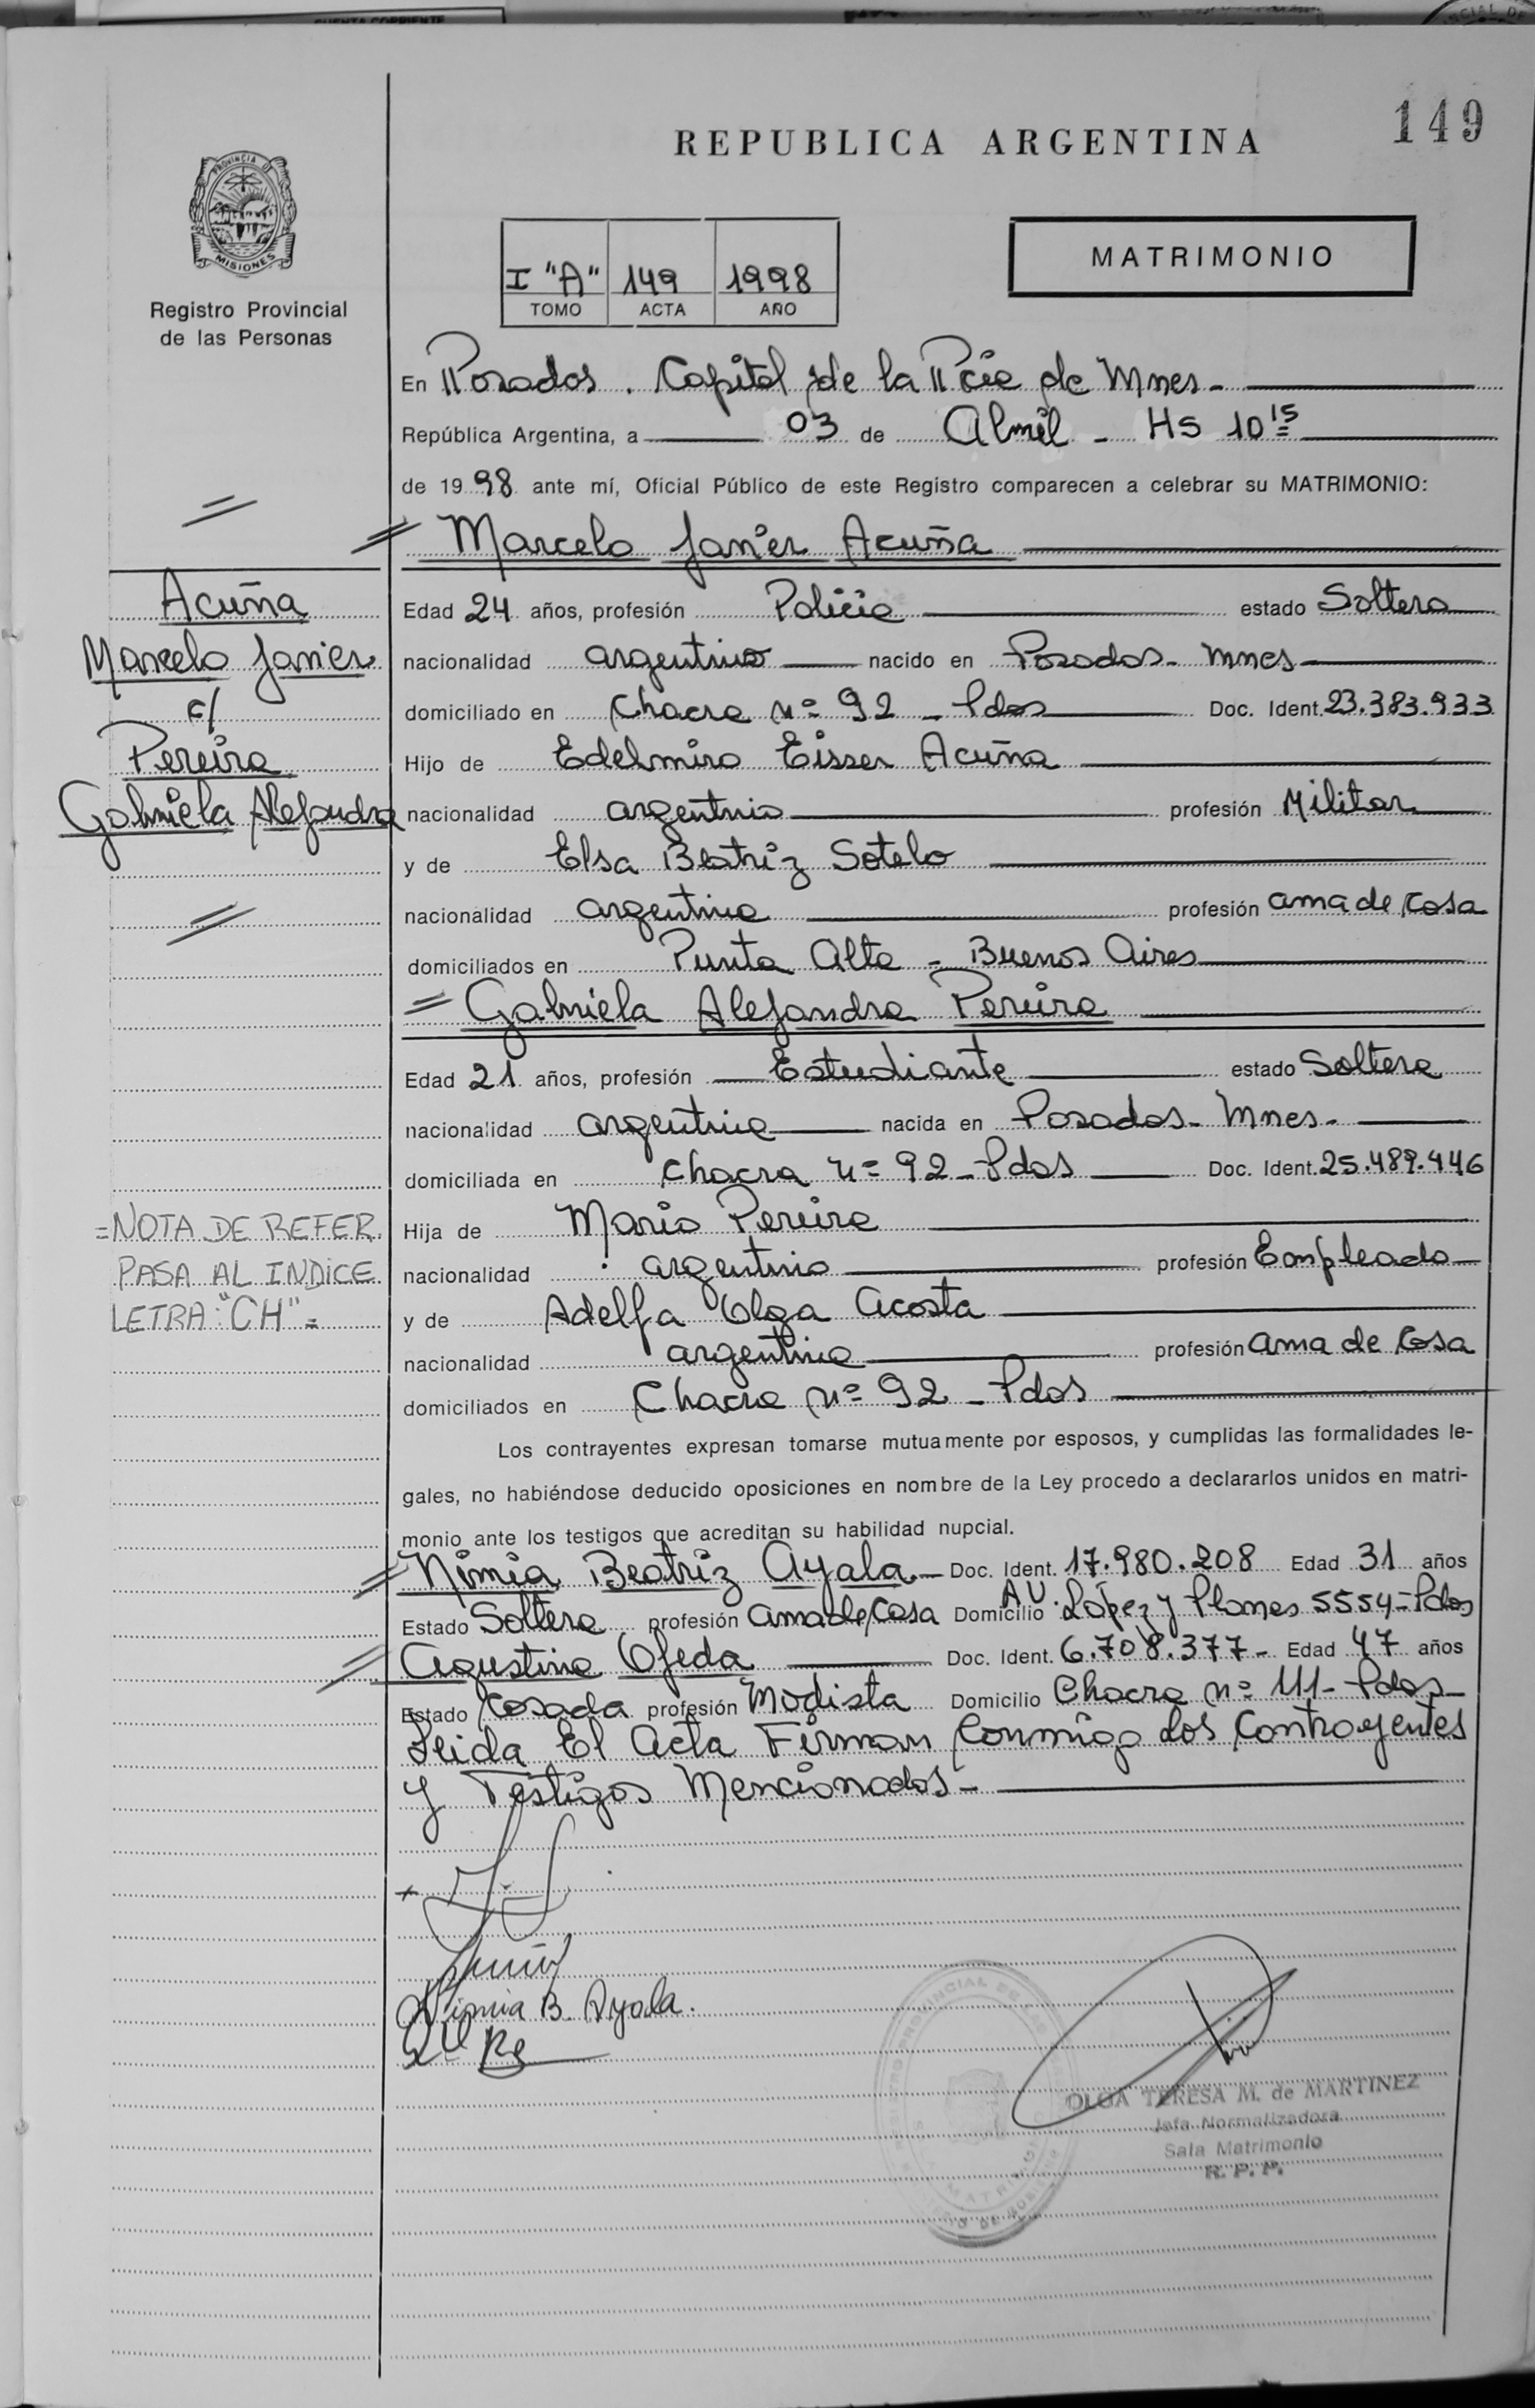 CUENTA CORRIENTE
149
REPUBLICA ARGENTINA
PROVINCIA DE
MISIONES
Registro Provincial
de las Personas
I "A" 149 1998
TOMO ACTA AÑO
MATRIMONIO
En Posadas. Capital de la Pcia de Mnes-
República Argentina, a 03 de Abril - Hs 10 15
de 1998 ante mí, Oficial Público de este Registro comparecen a celebrar su MATRIMONIO:
Marcelo Javier Acuña
Acuña
Marcelo Javier
c/
Pereira
Gabriela Alejandra
Edad 24 años, profesión Policia estado Soltero
nacionalidad argentino nacido en Posadas - Mnes
domiciliado en Chacra nº 92 - Pdas Doc. Ident. 23.383.933
Hijo de Edelmiro Eisser Acuña
nacionalidad argentino profesión Militar
y de Elsa Beatriz Sotelo
nacionalidad argentina profesión ama de casa
domiciliados en Punta Alta - Buenos Aires
= Gabriela Alejandra Pereira
Edad 21 años, profesión Estudiante estado Soltera
nacionalidad argentina nacida en Posadas - Mnes -
domiciliada en Chacra nº 92 - Pdas Doc. Ident. 25.489.446
Hija de Mario Pereira
nacionalidad argentino profesión Empleado
y de Adelfa Olga Acosta
nacionalidad argentina profesión ama de casa
domiciliados en Chacra nº 92 - Pdas
= NOTA DE REFER.
PASA AL INDICE
LETRA: "CH" =
Los contrayentes expresan tomarse mutuamente por esposos, y cumplidas las formalidades le-
gales, no habiéndose deducido oposiciones en nombre de la Ley procedo a declararlos unidos en matri-
monio ante los testigos que acreditan su habilidad nupcial.
Nimia Beatriz Ayala - Doc. Ident. 17.980.208 Edad 31 años
Estado Soltera profesión ama de casa Domicilio AV. López y Planes 5554 - Pdas
Agustina Ojeda Doc. Ident. 6.708.377 - Edad 47 años
Estado Casada profesión Modista Domicilio Chacra nº 111 - Pdas -
Leida El Acta Firman Conmigo Los Contrayentes
y Testigos Mencionados -
Nimia B. Ayala.
OLGA TERESA M. de MARTINEZ
Jefa Normalizadora
Sala Matrimonio
R. P. P.